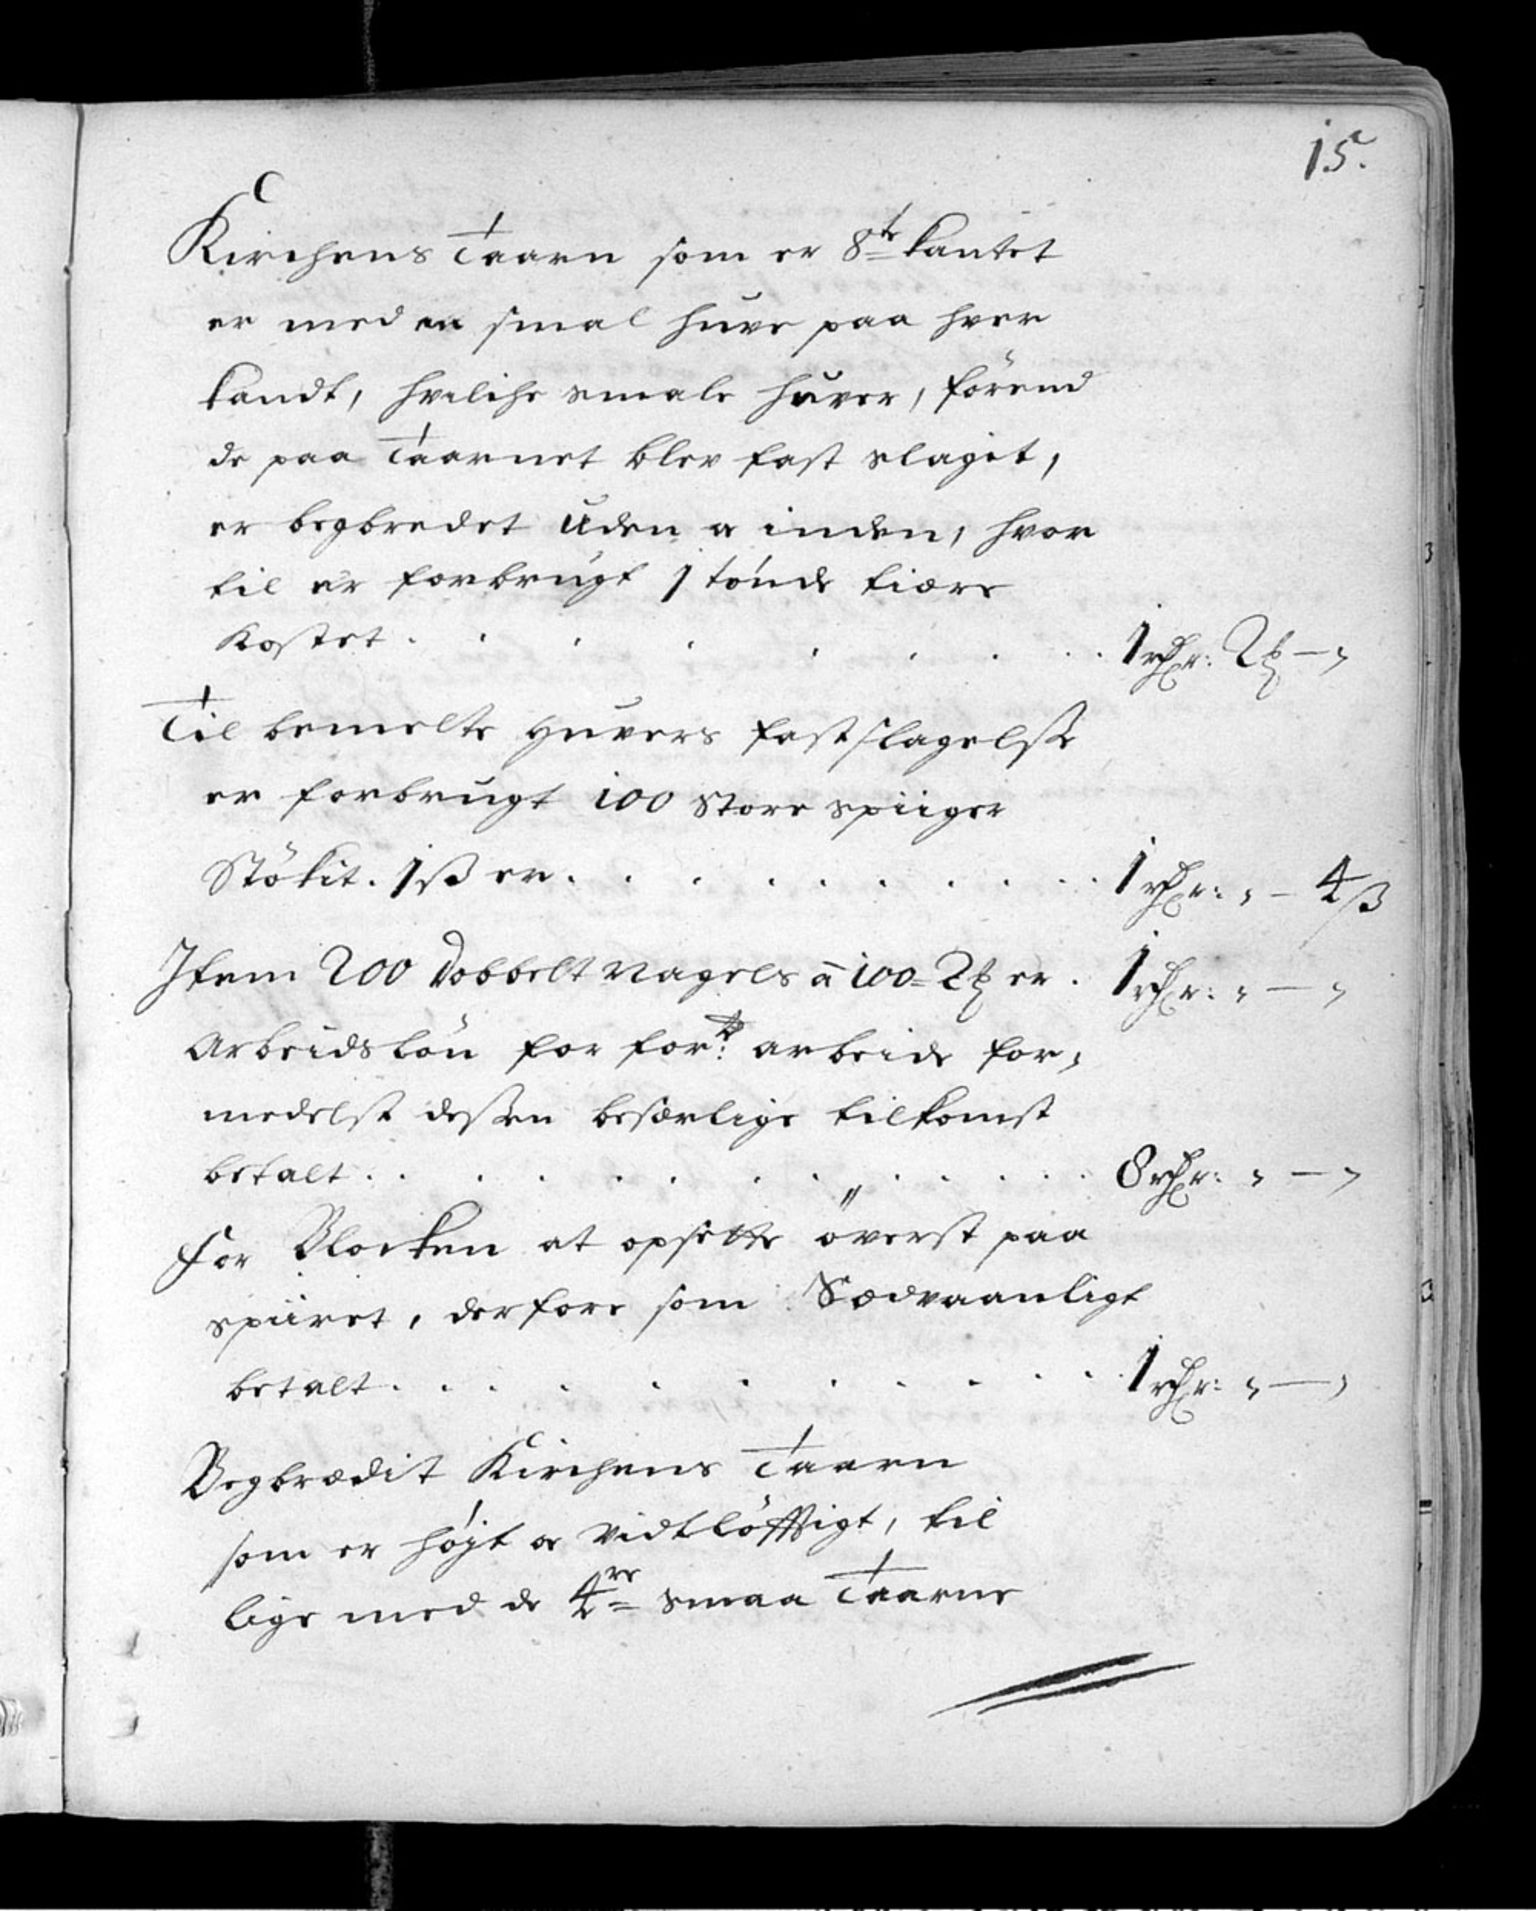 15.
Kirchens Taarn som er 8te kantet
er med en smal huve paa hver
kandt, hvilche smale huver, förend
de paa Taarnet blev fast slagit,
er begbredet uden a inden, hvor
til er forbrugt 1 tönde tiære
Kostet . . . . . . . . 1 rdr: 2 ₰ — „
Til bemelte Huvers fastslagelsse
er forbrugt 100 Store spiiger
Stökit. 1 ß er . . . . . . . . . 1 rdr: „ — 4 ß
Item 200 Dobbelt Nagels â 100 = 2 ₰ er . 1 rdr: „ — „
Arbeidslön for for.te arbeide for„
medelst dessen besærlige tilkomst
betalt . . . . . . . . . . 8 rdr: „ — „
For Blocken at opsette överst paa
spiiret, derfore som Sædvaanligt
betalt . . . . . . . . . . 1 rdr: „ — „
Begbrædit Kirchens Taarn
som er höjt a vidtlöfftigt, til
lige med de 4re smaa Taarne